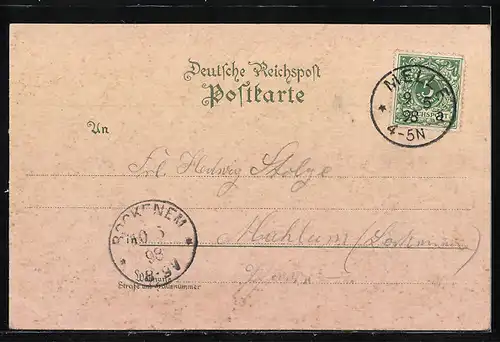 Deutsche Reichspost
Postkarte
MELLE
9 5
98 a.
4-5N
5
An
Frl. Hedwig Stolze
in
Mahlum (Bockenem)
BOCKENEM
10 5
98
8-9V
Wohnung
Straße und Hausnummer